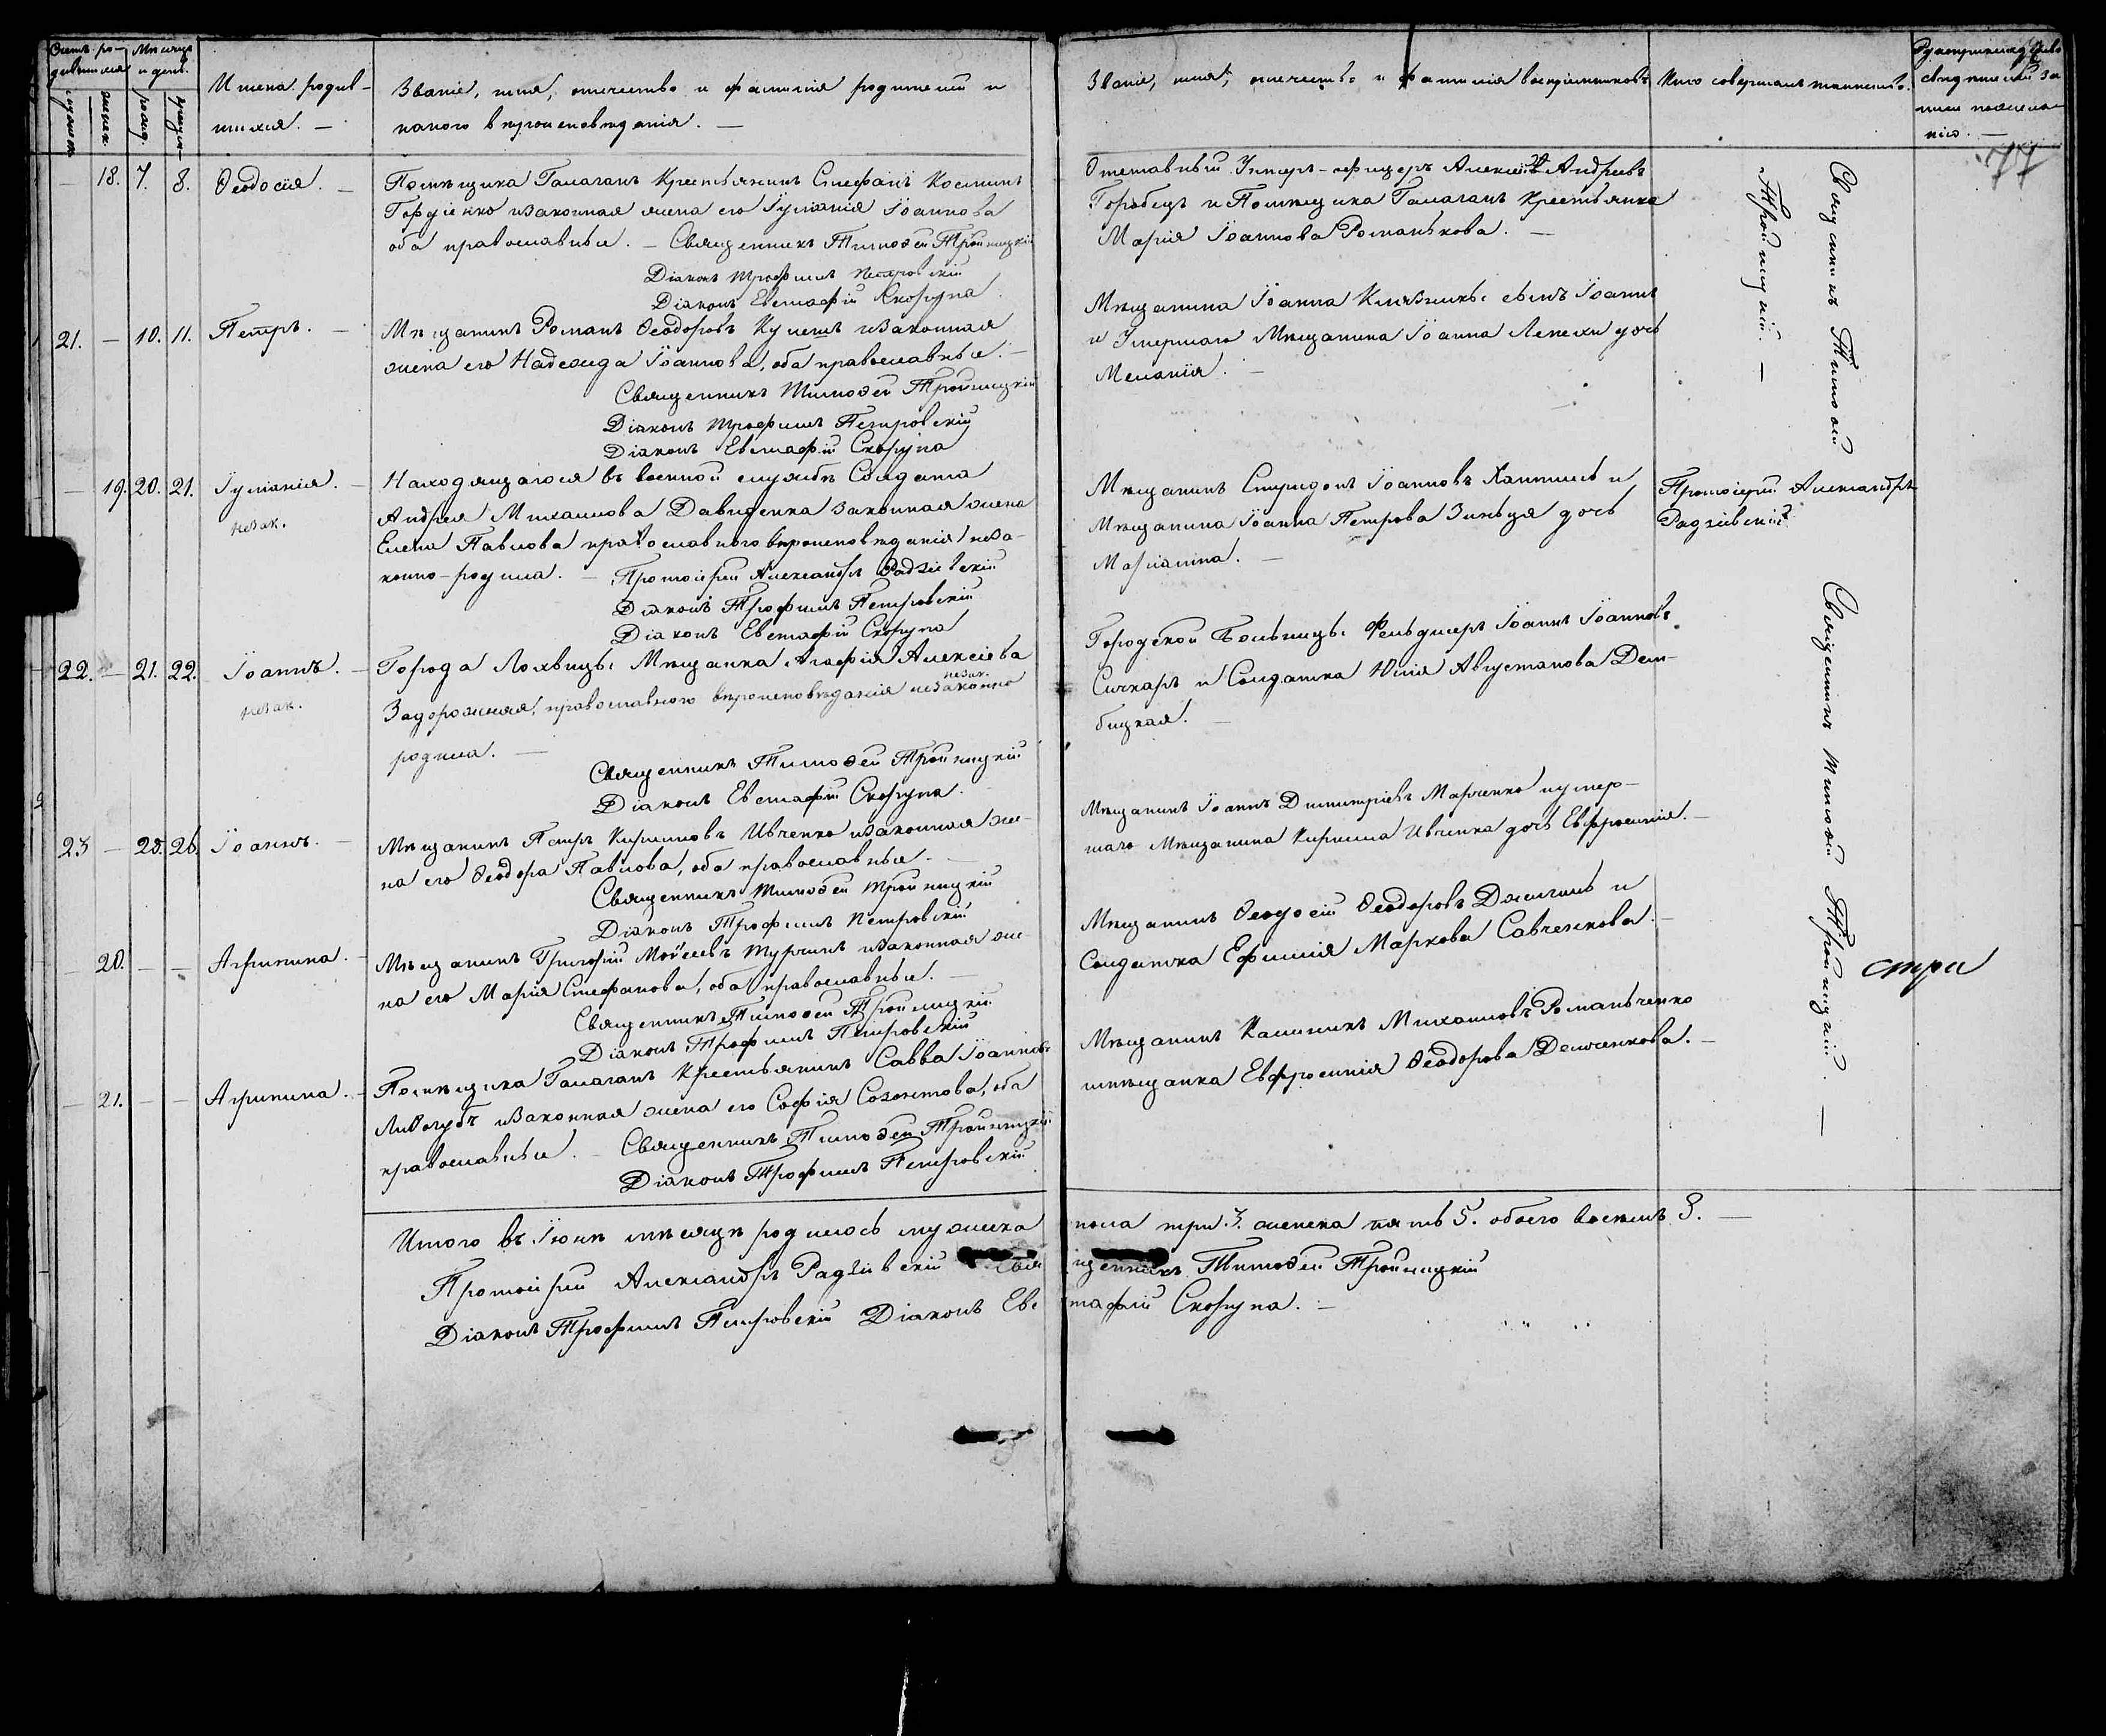 Счетъ ро-
дившихся
Мѣсяцъ
и день.
мужеск.
женск.
рожд.
крещен.
Имена родив-
шихся. —
Званіе, имя, отчество и фамилія родителей и
какого вѣроисповѣданія. —
Званіе, имя, отчество и фамилія воспріемниковъ
Кто совершалъ таинство.
Рукоприкладство
свидѣтелей за-
писи по желанію. —
77
— 18. 7. 8. Ѳеодосія. —
Помѣщика Галаганъ Крестьянинъ Стефанъ Косминъ
Гордіенко и законная жена его Іуліанія Іоаннова
оба православные. — Священникъ Тимоѳей Тройницкій
Діаконъ Трофимъ Петровскій
Діаконъ Евстафій Скорупа
Отставный Унтеръ-офицеръ Алексій Андреевъ
Горобецъ и Помѣщика Галаганъ Крестьянка
Марія Іоаннова Романькова. —
Священникъ Тимоѳей
Тройницкій. —
21. — 10. 11. Петръ. —
Мѣщанинъ Романъ Ѳеодоровъ Кулешъ и законная
жена его Надежда Іоаннова, оба православные. —
Священникъ Тимоѳей Тройницкій
Діаконъ Трофимъ Петровскій
Діаконъ Евстафій Скорупа
Мѣщанина Іоанна сынъ Іоаннъ
и Умершаго Мѣщанина Іоанна Лепехи дочь
Меланія. —
— 19. 20. 21. Іуліанія. —
незак.
Находящагося въ военной службѣ Солдата
Андрея Михаилова Давиденка законная жена
Елена Павлова православнаго вѣроисповѣданія неза-
конно-родила. — Протоіерей Александръ Радзіевскій
Діаконъ Трофимъ Петровскій
Діаконъ Евстафій Скорупа
Мѣщанинъ Спиридонъ Іоанновъ и
Мѣщанина Іоанна Петрова Зиньця дочь
Маріанна. —
Протоіерей Александръ
Радзіевскій
22. — 21. 22. Іоаннъ. —
незак.
Города Лохвицы Мѣщанка Агафія Алексіева
незак.
Задорожняя, православного вѣроисповѣданія незаконно
родила. —
Священникъ Тимоѳей Тройницкій
Діаконъ Евстафій Скорупа.
Городской Больницы Фельдшеръ Іоаннъ Іоанновъ
Сичкарь и Солдатка Юлія Августанова Дем-
бицкая. —
Священникъ Тимоѳей Тройницкій. —
23 — 25. 26. Іоаннъ. —
Мѣщанинъ Петръ Кирилловъ Ивченко и законная же-
на его Ѳеодора Павлова, оба православные —
Священникъ Тимоѳей Тройницкій
Діаконъ Трофимъ Петровскій
Мѣщанинъ Іоаннъ Димитріевъ Марченко и умер-
шаго Мѣщанина Кирилла Ивченка дочь Евфросинія. —
— 20. — — Агрипина. —
Мѣщанинъ Григорій Моѵсеевъ Турчинъ и законная же-
на его Марія Стефанова, оба православные. —
Священникъ Тимоѳей Тройницкій
Діаконъ Трофимъ Петровскій
Мѣщанинъ Ѳеодосій Ѳеодоровъ и
Солдатка Ефимія Маркова Савченкова. —
стри
— 21. — — Агрипина. —
Помѣщика Галаганъ Крестьянинъ Савва Іоанновъ
Ливогубъ и законная жена его Софія Созонтова, оба
православные. — Священникъ Тимоѳей Тройницкій
Діаконъ Трофимъ Петровскій
Мѣщанинъ Калиникъ Михаиловъ Романьченко
и мѣщанка Евфросинія Ѳеодорова Демченкова. —
Итого въ Іюнѣ мѣсяцѣ родилось мужеска пола три 3. женска пять 5. обоего восемь 8. —
Протоіерей Александръ Радзіевскій Священникъ Тимоѳей Тройницкій
Діаконъ Трофимъ Петровскій Діаконъ Евстафій Скорупа. —